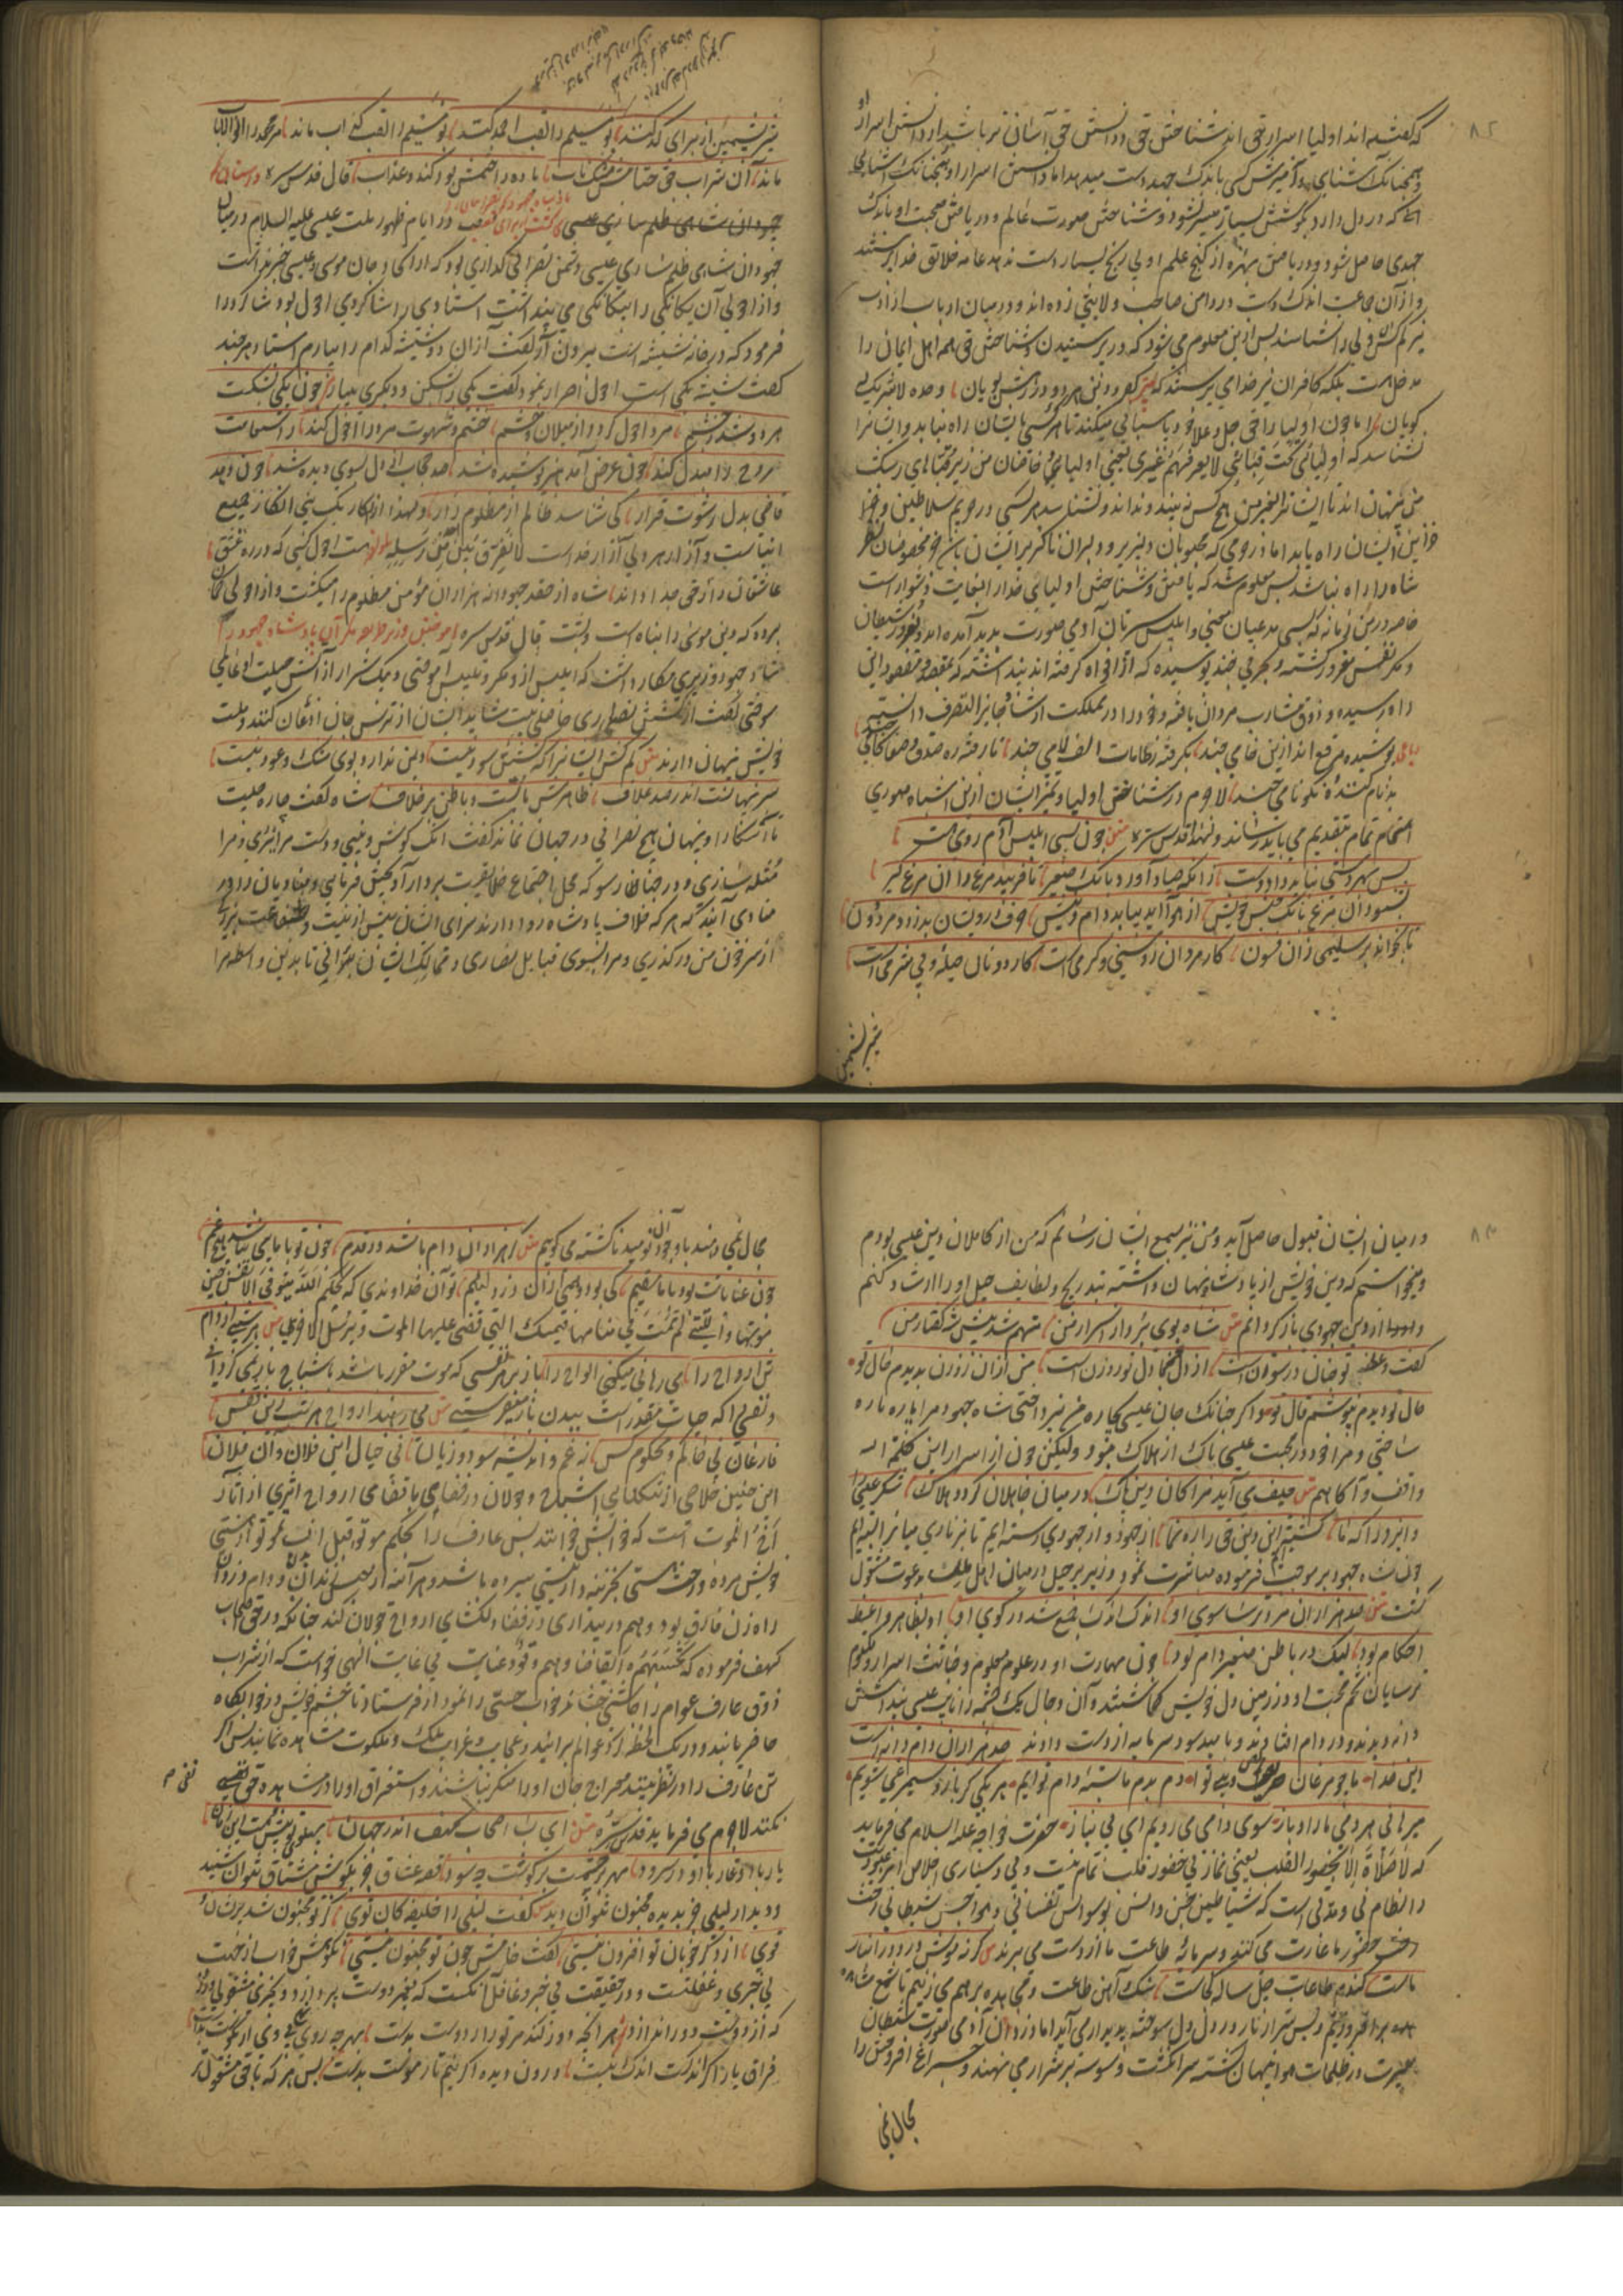 که گفته اند اولیا اسرار حق اند شناختن حق و دانستن حق آسانی تر باشد از دانستن اسرار او
و همچنانک آشنایی و آمیزش کسی باندک جهد دست میدهد اما دانستن اسرار او همچنانک اشیایی
که در دل دارد بکوشش بسیار میسر نشود و شناختن صورت عالم و دریافتن صحبت او باندک
جهدی حاصل شود و دریافتن بهره از گنج علم او بی رنج بسیار دست ندهد عامه خلایق خدا پرستند
و از آن جماعت اندک دست در دامن صاحب ولایتی زده اند و در میان ارباب ارادت
نیز کم کس ولی را شناسد پس ازین معلوم می شود که در پرستیدن و شناختن حق همه اهل ایمان را
مدخل است بلکه کافران نیز خدای پرستند که کفر و دین هر دو در رهش پویان وحده لا شریک له
گویان اما چون اولیا را حق جل و علا خود پاسبانی میکند تا هر کسی بایشان راه نیابد و ایشانرا
نشناسد که اولیائی تحت قبائی لا یعرفهم غیری یعنی اولیای خاصان من زیر قبهای رشک
من پنهان اند تا ایشانرا بغیر من هیچ کس نه بیند و نداند و نشناسد هر کسی در حریم سلاطین و خز
خزاین ایشان راه یابد اما در حرمی که محبوبان دلپذیر و دلبران ناگزیر ایشان باشد جز مخصوصان نظر
شاه را راه نباشد پس معلوم شد که یافتن و شناختن اولیای خدا در غایت دشوار است
خاصه درین زمانه که بسی مدعیان معنی و ابلیس سیرتان آدمی صورت پدید آمده اند و بغرور شیطان
و مکر نفس مغرور گشته و بحرفی چند پوسیده که از افواه گرفته اند پنداشته که بمقصد و مقصود این
راه رسیده و ذوق مشارب مردان یافته و خود را در مملکت ارشاد جایز التصرف دانسته
رباعی پوشیده مرقع اند ازین خامی چند بگرفته ز طامات الف لامی چند نا رفته ره صدق و صفا گامی چند
بدنام کننده نکو نامی چند لاجرم در شناختن اولیا و تمیز ایشان ازین اشباه صوری
اهتمام تمام بتقدیم می باید رسانید و لهذا قدس سره متن چون بسی ابلیس آدم روی هست
پس بهر دستی نباید داد دست زانکه صیاد آورد بانک صفیر تا فریبد مرغ را آن مرغ گیر
بشنود آن مرغ بانک جنس خویش از هوا آید بیابد دام و نیش حرف درویشان بدزدد مرد دون
تا بخواند بر سلیمی زان فسون کار مردان روشنی و گرمی است کار دونان حیله و بی شرمی است
شیر پشمین
شیر پشمین از برای کد کنند بو مسیلم را لقب احمد کنند بو مسیلم را لقب کذاب ماند مر محمد را اولو الالباب
ماند آن شراب حق ختامش مشک ناب باده را ختمش بود کند و عذاب قال قدس سره داستان
در ایام ظهور ملت عیسی علیه السلام در میان
جهودان شاهی ظلم سازی عیسی دشمن نصرانی گدازی بود که از احولی جان موسی و عیسی جز نمیدانست
و از احولی آن یگانگی را بیگانگی می پنداشت استادی مر شاگردی احول بود شاگرد را
فرمود که در خانه شیشه است بیرون آر گفت از آن دو شیشه کدام را بیارم استاد هر چند
گفت شیشه یکی است احول اصرار نمود گفت یکی را بشکن و دیگری بیار چون یکی بشکست
هر دو شد ز چشم مرد احول گردد از میلان و خشم خشم و شهوت مرد را احول کند ز استقامت
روح را مبدل کند چون غرض آمد هنر پوشیده شد صد حجاب از دل بسوی دیده شد چون دهد
قاضی بدل رشوت قرار کی شناسد ظالم از مظلوم زار و لهذا انکار یک نبی انکار جمیع
انبیاست و آزار هر ولی آزار خداست لا نفرق بین احد من رسله احول کسی که در ره عشق
عاشقان را ز حق جدا داند شاه از حقد جهودانه هزاران مؤمن مظلوم را میکشت و از احولی گمان
برده که دین موسی را پناه است و پشت قال قدس سره آموختن وزیر مکر آن پادشاه جهود را
شاه جهود وزیری مکار داشت که ابلیس ازو مکر و تلبیس آموختی و بیک شرار از آتش حیلت او عالمی
سوختی گفت از کشتن نصاری حاصلی نیست شاید ایشان از ترس جان اذعان کنند و ملت
خویش پنهان دارند متن کم کش ایشانرا که کشتن سود نیست دین ندارد بوی مشک و عود نیست
سر پنهانست اندر صد غلاف ظاهرش با تست و باطن بر خلاف شاه گفت چاره چیست
تا آشکارا و پنهان هیچ نصرانی در جهان نماند گفت آنک گوش و بینی و دست مرا ببری و مرا
مثله سازی و در چنان سر سو که محل اجتماع خلایق است بر دار آر بحبش فرمایی و منادیان را در
منادی آیند که هر که خلاف پادشاه روا دارد سزای ایشان بیش ازین است و شفاعت
از سر خون من درگذری و مرا بسوی قبایل نصاری و ممالک ایشان برانی تا بدین واسطه مرا
در میان ایشان قبول حاصل آید و من نیز بسمع ایشان رسانم که من از کاملان دین عیسی بودم
و میخواستم که دین خویش از پادشاه پنهان داشته بتدریج و لطایف حیل او را ارشاد کنم
و از دین جهودی باز گردانم متن شاه بوی برد از اسرار من متهم شد پیش شه گفتار من
گفت گفت تو چو نان در سوزن است از دل من تا دل تو روزن است من از آن روزن بدیدم حال تو
حال تو دیدم ننوشم قال تو و اگر چنانک جان عیسی چاره من نپرداختی شاه جهود مرا پاره پاره
ساختی و مرا خود در محبت عیسی باک از هلاک نبود ولیکن چون از اسرار این کلمة الله
واقف و آگاهم متن حیف می آید مرا کان دین پاک در میان جاهلان گردد هلاک شکر عیسی را
و ایزد را که ما گشته ایم این دین حق را رهنما از جهود و از جهودی رسته ایم تا بزناری میانرا بسته ایم
چون شاه جهود بر موجب فرموده مباشرت نمود وزیر پر حیل در میان اهل ملت بدعوت مشغول
گشت متن صد هزاران مرد ترسا سوی او اندک اندک جمع شد در کوی او او بظاهر واعظ
احکام بود لیک در باطن صفیر و دام بود چون مهارت او در علوم معلوم و خباثت اسرار مکتوم
ترسایان تخم محبت او در زمین دل خویش کاشتند و آن دجال یک چشم را نایب عیسی پنداشتند
دانه دیدند و در دام افتادند و بامید سود سرمایه از دست دادند صد هزاران دام و دانه است
ای خدا ما چو مرغان حریص و بی نوا دم بدم ما بسته دام نوایم هر یکی گر باز و سیمرغی شویم
میرهانی هر دمی ما را و باز سوی دامی می رویم ای بی نیاز حضرت خواجه علیه السلام می فرماید
که لا صلاة الا بحضور القلب یعنی نماز بی حضور قلب تمام نیست و بی دستیاری اخلاص امر عبودیت
را نظام نی و مدتی است که شیاطین جن و انس بوسواس نفسانی و هواجس شیطانی رخت
حضور ما غارت می کنند و سرمایه طاعت ما از دست می برند متن گرنه موش دزد در انبار
ماست گندم طاعات چل ساله کجاست سنگ آهن طاعت و مجاهده بر هم می زنیم تا شمع مشاهده
بر افروزیم و بس شرار از نار در دل سوخته پدیدار می آید اما دزدان آدمی صورت شیطان
سیرت در ظلمات هوا پنهان گشته سر انگشت وسوسه بر شرار می نهند و چراغ افروختن را
مجال نمی
مجال نمی دهند با وجود آن نومید ناگشته می گویم متن گر هزاران دام باشد در قدم چون تو با مایی نباشد هیچ غم
چون عنایاتت بود با ما مقیم کی بود بیمی از آن دزد لئیم تو آن خداوندی که بحکم الله یتوفی الانفس حین
موتها و التی لم تمت فی منامها فیمسک التی قضی علیها الموت و یرسل الاخری متن هر شبی از دام
تن ارواح را می رهانی میکنی الواح را باز هر نفسی که موت مقرر باشد باشباح باز نمی گردانی
و نفسی را که حیات مقدر است ببدن باز میفرستی متن می رهند ارواح هر شب زین قفس
فارغان نی حاکم و محکوم کس نه غم و اندیشه سود و زیان نی خیال این فلان و آن فلان
این چنین خلاصی از تنگنای اشباح و جولان در فضای با قضای ارواح اثری از آثار
اخ الموت است که خوابش خوانند پس عارف را بحکم موتوا قبل ان تموتوا از هستی
خویش مرده و رخت هستی بخزینه دار نیستی سپرده باشد هر آینه از حبس زندان بدن و دام دزدان
راه زن فارق بود و هم در بیداری در فضاء دلگشای ارواح جولان کند چنانکه در حق اصحاب
کهف فرموده که تحسبهم ایقاظا و هم رقود عنایت بی غایت الهی خواست که از شراب
ذوق عارف عوام را چاشنی چشاند خواب حسی را نمودار فرستاد تا بچشم خویش در خوابگاه
حاضر یابند و در یک لحظه گرد عوالم برآیند و عجایب و غرایب ملک و ملکوت مشاهده نمایند پس اگر
تن عارف را در نظر بینند معراج جان او را منکر نباشند و استغراق او را در مشاهده حق نفی
نفی م
نکنند لاجرم می فرماید قدس سره متن ای بسا اصحاب کهف اندر جهان پهلوی تو پیش تست این زمان
یار با او غار با او در سرود مهر بر چشمست و بر گوشت چه سود قصه عشاق جز بگوش مشتاق نتوان شنید
و دیدار لیلی جز بدیده مجنون نتوان دید متن گفت لیلی را خلیفه کان توی کز تو مجنون شد پریشان و
غوی از دگر خوبان تو افزون نیستی گفت خامش چون تو مجنون نیستی نکوهش خواب از جهت
بی خبری و غفلتست و در حقیقت بی خبر و غافل آنکست که بغیر دوست پردازد و بچیزی مشغولی ورزد
که از دوست دور اندازد هر آنچه دور کند مر ترا ز دوست بدست بهر چه روی نهی بی وی ار نکوست بدست
فراق یار اگر اندکست اندک نیست درون دیده اگر نیم تار موست بدست پس هر که با حق مشغول تر